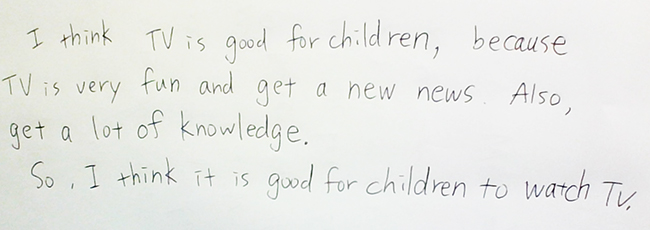 I think TV is good for children, because
TV is very fun and get a new news. Also,
get a lot of knowledge.
So, I think it is good for children to watch TV.